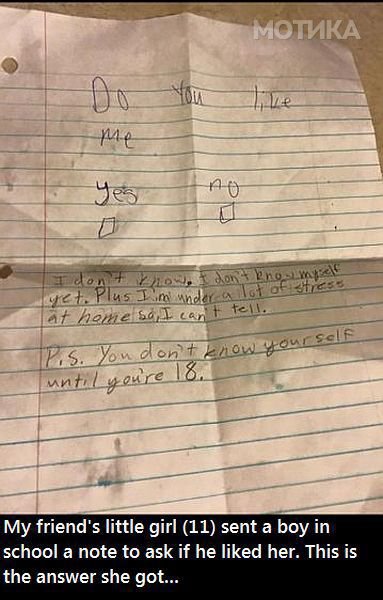 МОТИКА
Do You like
me
Yes no
I don't know. I don't know myself
yet. Plus I'm under a lot of stress
at home so, I can't tell.
P.S. You don't know yourself
until you're 18.
My friend's little girl (11) sent a boy in
school a note to ask if he liked her. This is
the answer she got...